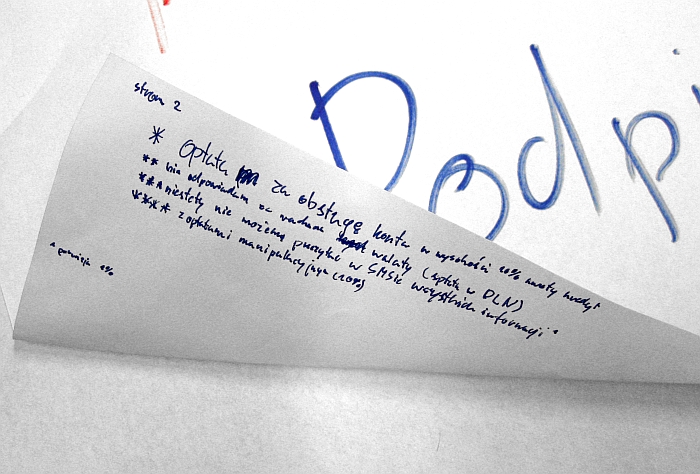 Podpi
strona 2
* Opłata za obsługę konta w wysokości 10% kwoty kredytu
** nie odpowiadam za wahania waluty (spłata w DLN)
*** niestety nie możemy przesyłać w SMSie wszystkich informacji "
**** z opłatami manipulacyjnymi (20%)